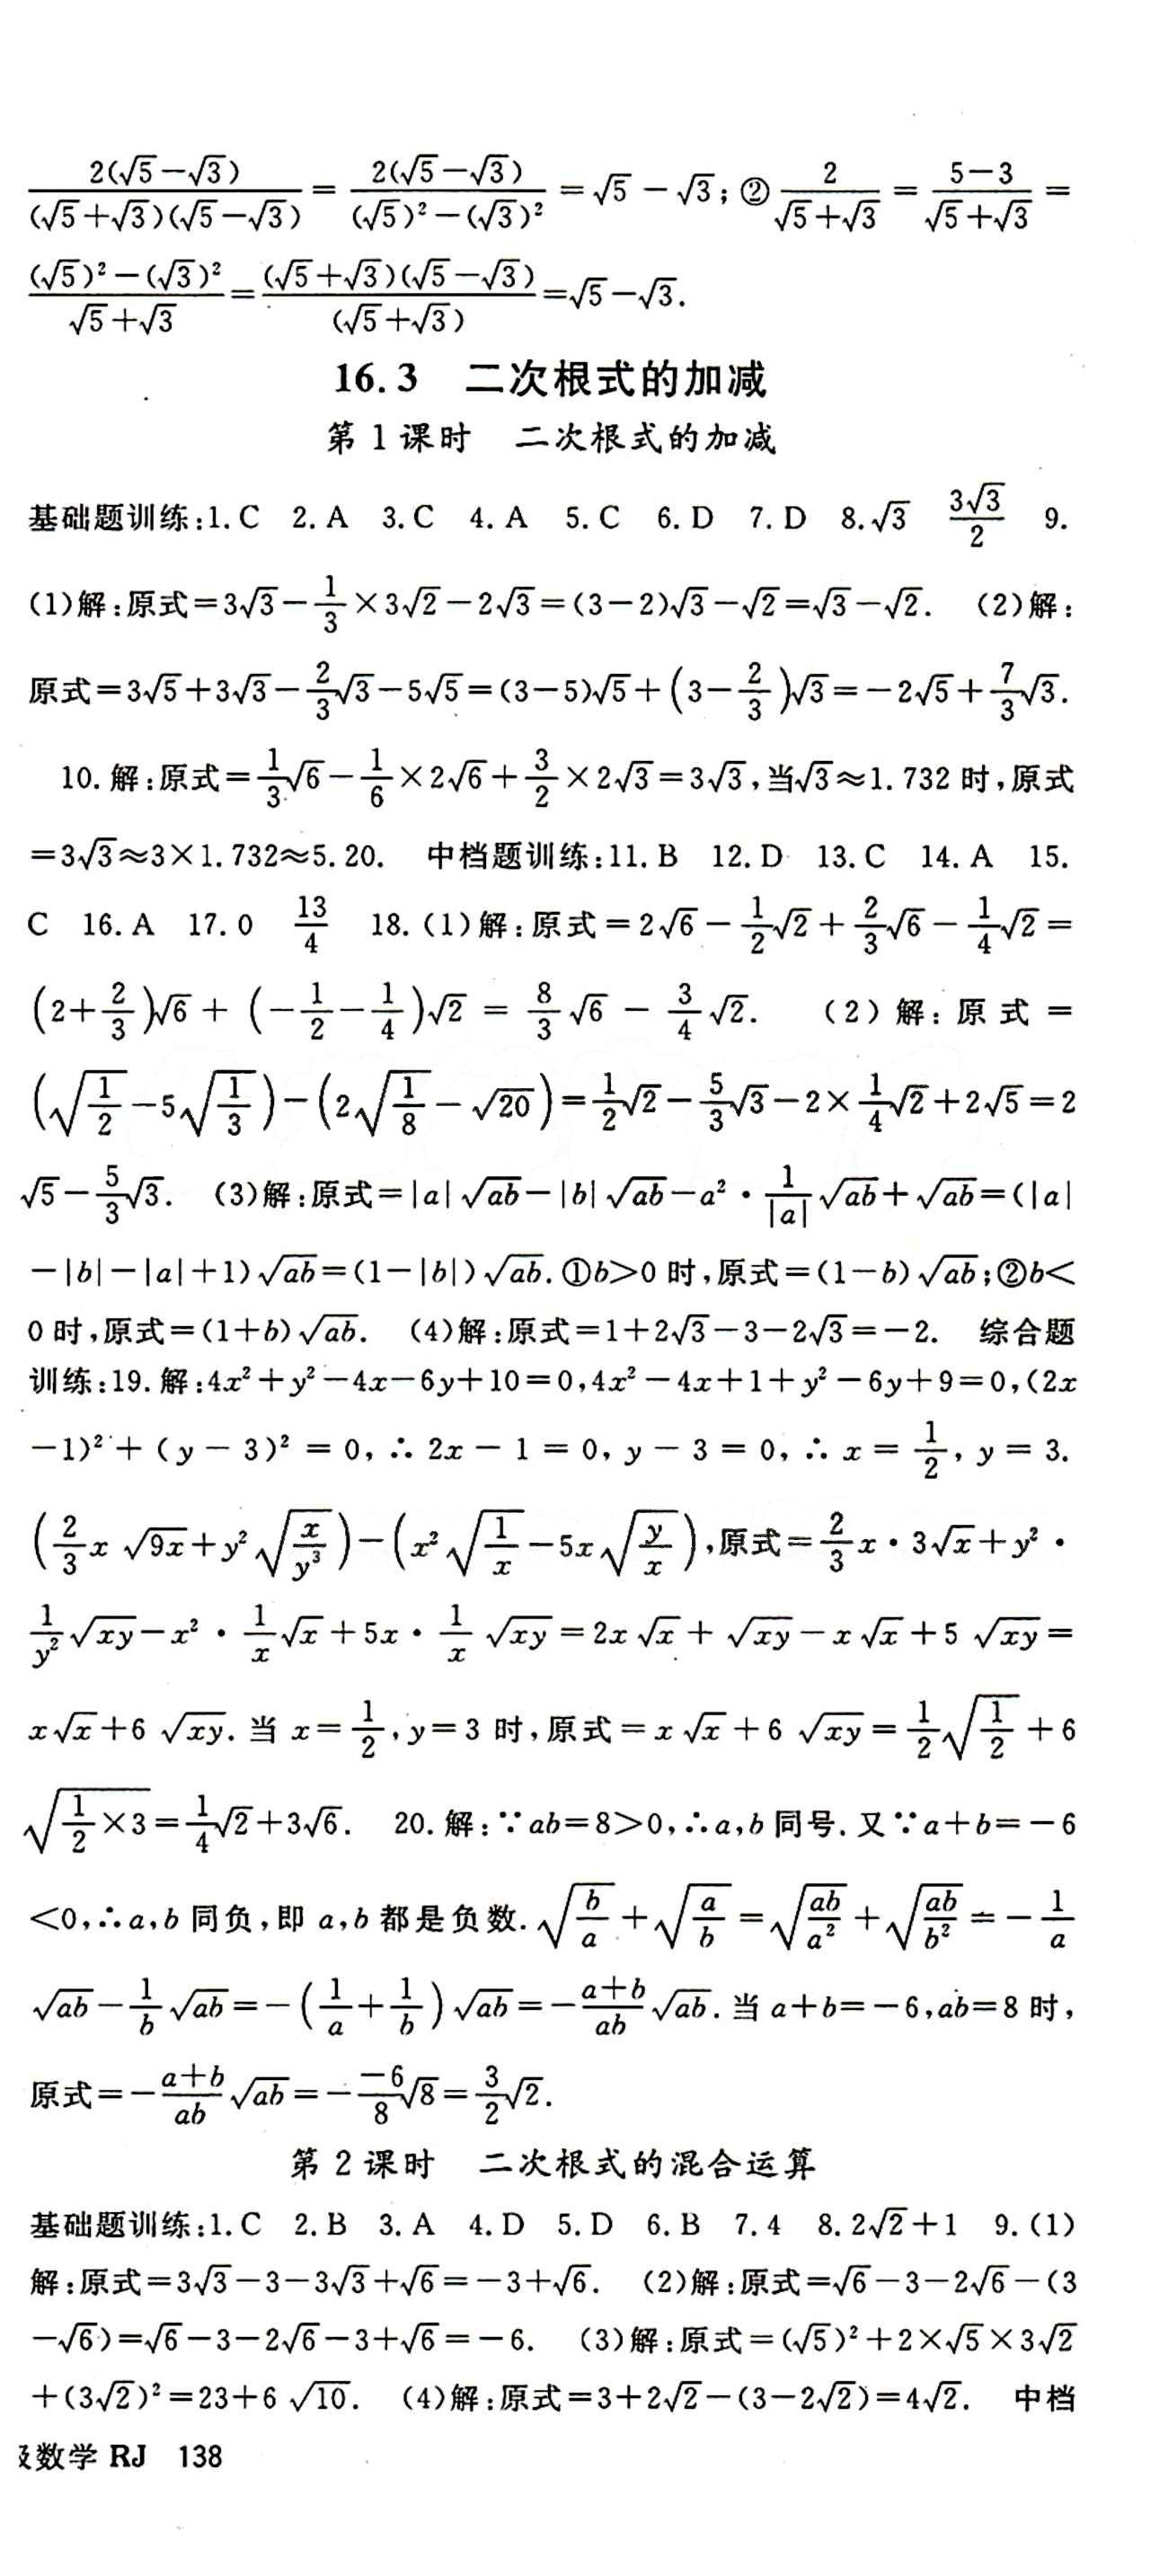 2(√5−√3)/((√5+√3)(√5−√3)) = 2(√5−√3)/((√5)²−(√3)²) =√5−√3;② 2/(√5+√3) = (5−3)/(√5+√3) =
((√5)²−(√3)²)/(√5+√3) = (√5+√3)(√5−√3)/(√5+√3) =√5−√3.
16.3 二次根式的加减
第1课时 二次根式的加减
基础题训练:1.C 2.A 3.C 4.A 5.C 6.D 7.D 8.√3 3√3/2 9.
(1)解:原式=3√3−1/3×3√2−2√3=(3−2)√3−√2=√3−√2. (2)解:
原式=3√5+3√3−2/3√3−5√5=(3−5)√5+(3−2/3)√3=−2√5+7/3√3.
10.解:原式=1/3√6−1/6×2√6+3/2×2√3=3√3,当√3≈1.732时,原式
=3√3≈3×1.732≈5.20. 中档题训练:11.B 12.D 13.C 14.A 15.
C 16.A 17.0 13/4 18.(1)解:原式=2√6−1/2√2+2/3√6−1/4√2=
(2+2/3)√6+(−1/2−1/4)√2=8/3√6−3/4√2. (2)解:原式=
(√(1/2)−5√(1/3))−(2√(1/8)−√20)=1/2√2−5/3√3−2×1/4√2+2√5=2
√5−5/3√3. (3)解:原式=|a|√ab−|b|√ab−a²·1/|a|√ab+√ab=(|a|
−|b|−|a|+1)√ab=(1−|b|)√ab.①b>0时,原式=(1−b)√ab;②b<
0时,原式=(1+b)√ab. (4)解:原式=1+2√3−3−2√3=−2. 综合题
训练:19.解:4x²+y²−4x−6y+10=0,4x²−4x+1+y²−6y+9=0,(2x
−1)²+(y−3)²=0,∴2x−1=0,y−3=0,∴x=1/2,y=3.
(2/3x√9x+y²√(x/y³))−(x²√(1/x)−5x√(y/x)),原式=2/3x·3√x+y²·
1/y²√xy−x²·1/x√x+5x·1/x√xy=2x√x+√xy−x√x+5√xy=
x√x+6√xy.当x=1/2,y=3时,原式=x√x+6√xy=1/2√(1/2)+6
√(1/2×3)=1/4√2+3√6. 20.解:∵ab=8>0,∴a,b同号.又∵a+b=−6
<0,∴a,b同负,即a,b都是负数.√(b/a)+√(a/b)=√(ab/a²)+√(ab/b²)=−1/a
√ab−1/b√ab=−(1/a+1/b)√ab=−(a+b)/ab√ab.当a+b=−6,ab=8时,
原式=−(a+b)/ab√ab=−(−6)/8√8=3/2√2.
第2课时 二次根式的混合运算
基础题训练:1.C 2.B 3.A 4.D 5.D 6.B 7.4 8.2√2+1 9.(1)
解:原式=3√3−3−3√3+√6=−3+√6. (2)解:原式=√6−3−2√6−(3
−√6)=√6−3−2√6−3+√6=−6. (3)解:原式=(√5)²+2×√5×3√2
+(3√2)²=23+6√10. (4)解:原式=3+2√2−(3−2√2)=4√2. 中档
数学 RJ 138